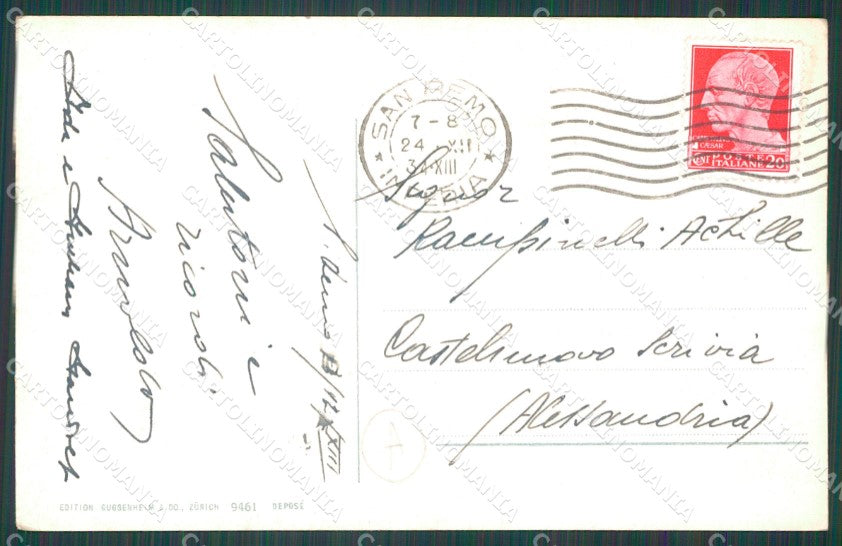 SAN REMO
7-8
24 XII
34·XIII
IMPERIA
CAESAR
CENT 20
POSTE
ITALIANE
Signor
Rampinelli Achille
Castelnuovo Scrivia
(Alessandria)
S. Remo
XIII
Salutoni e
ricordi
Arnoldo
EDITION GUGGENHEIM & CO., ZÜRICH 9461 DEPOSÉ
CARTOLINOMANIA